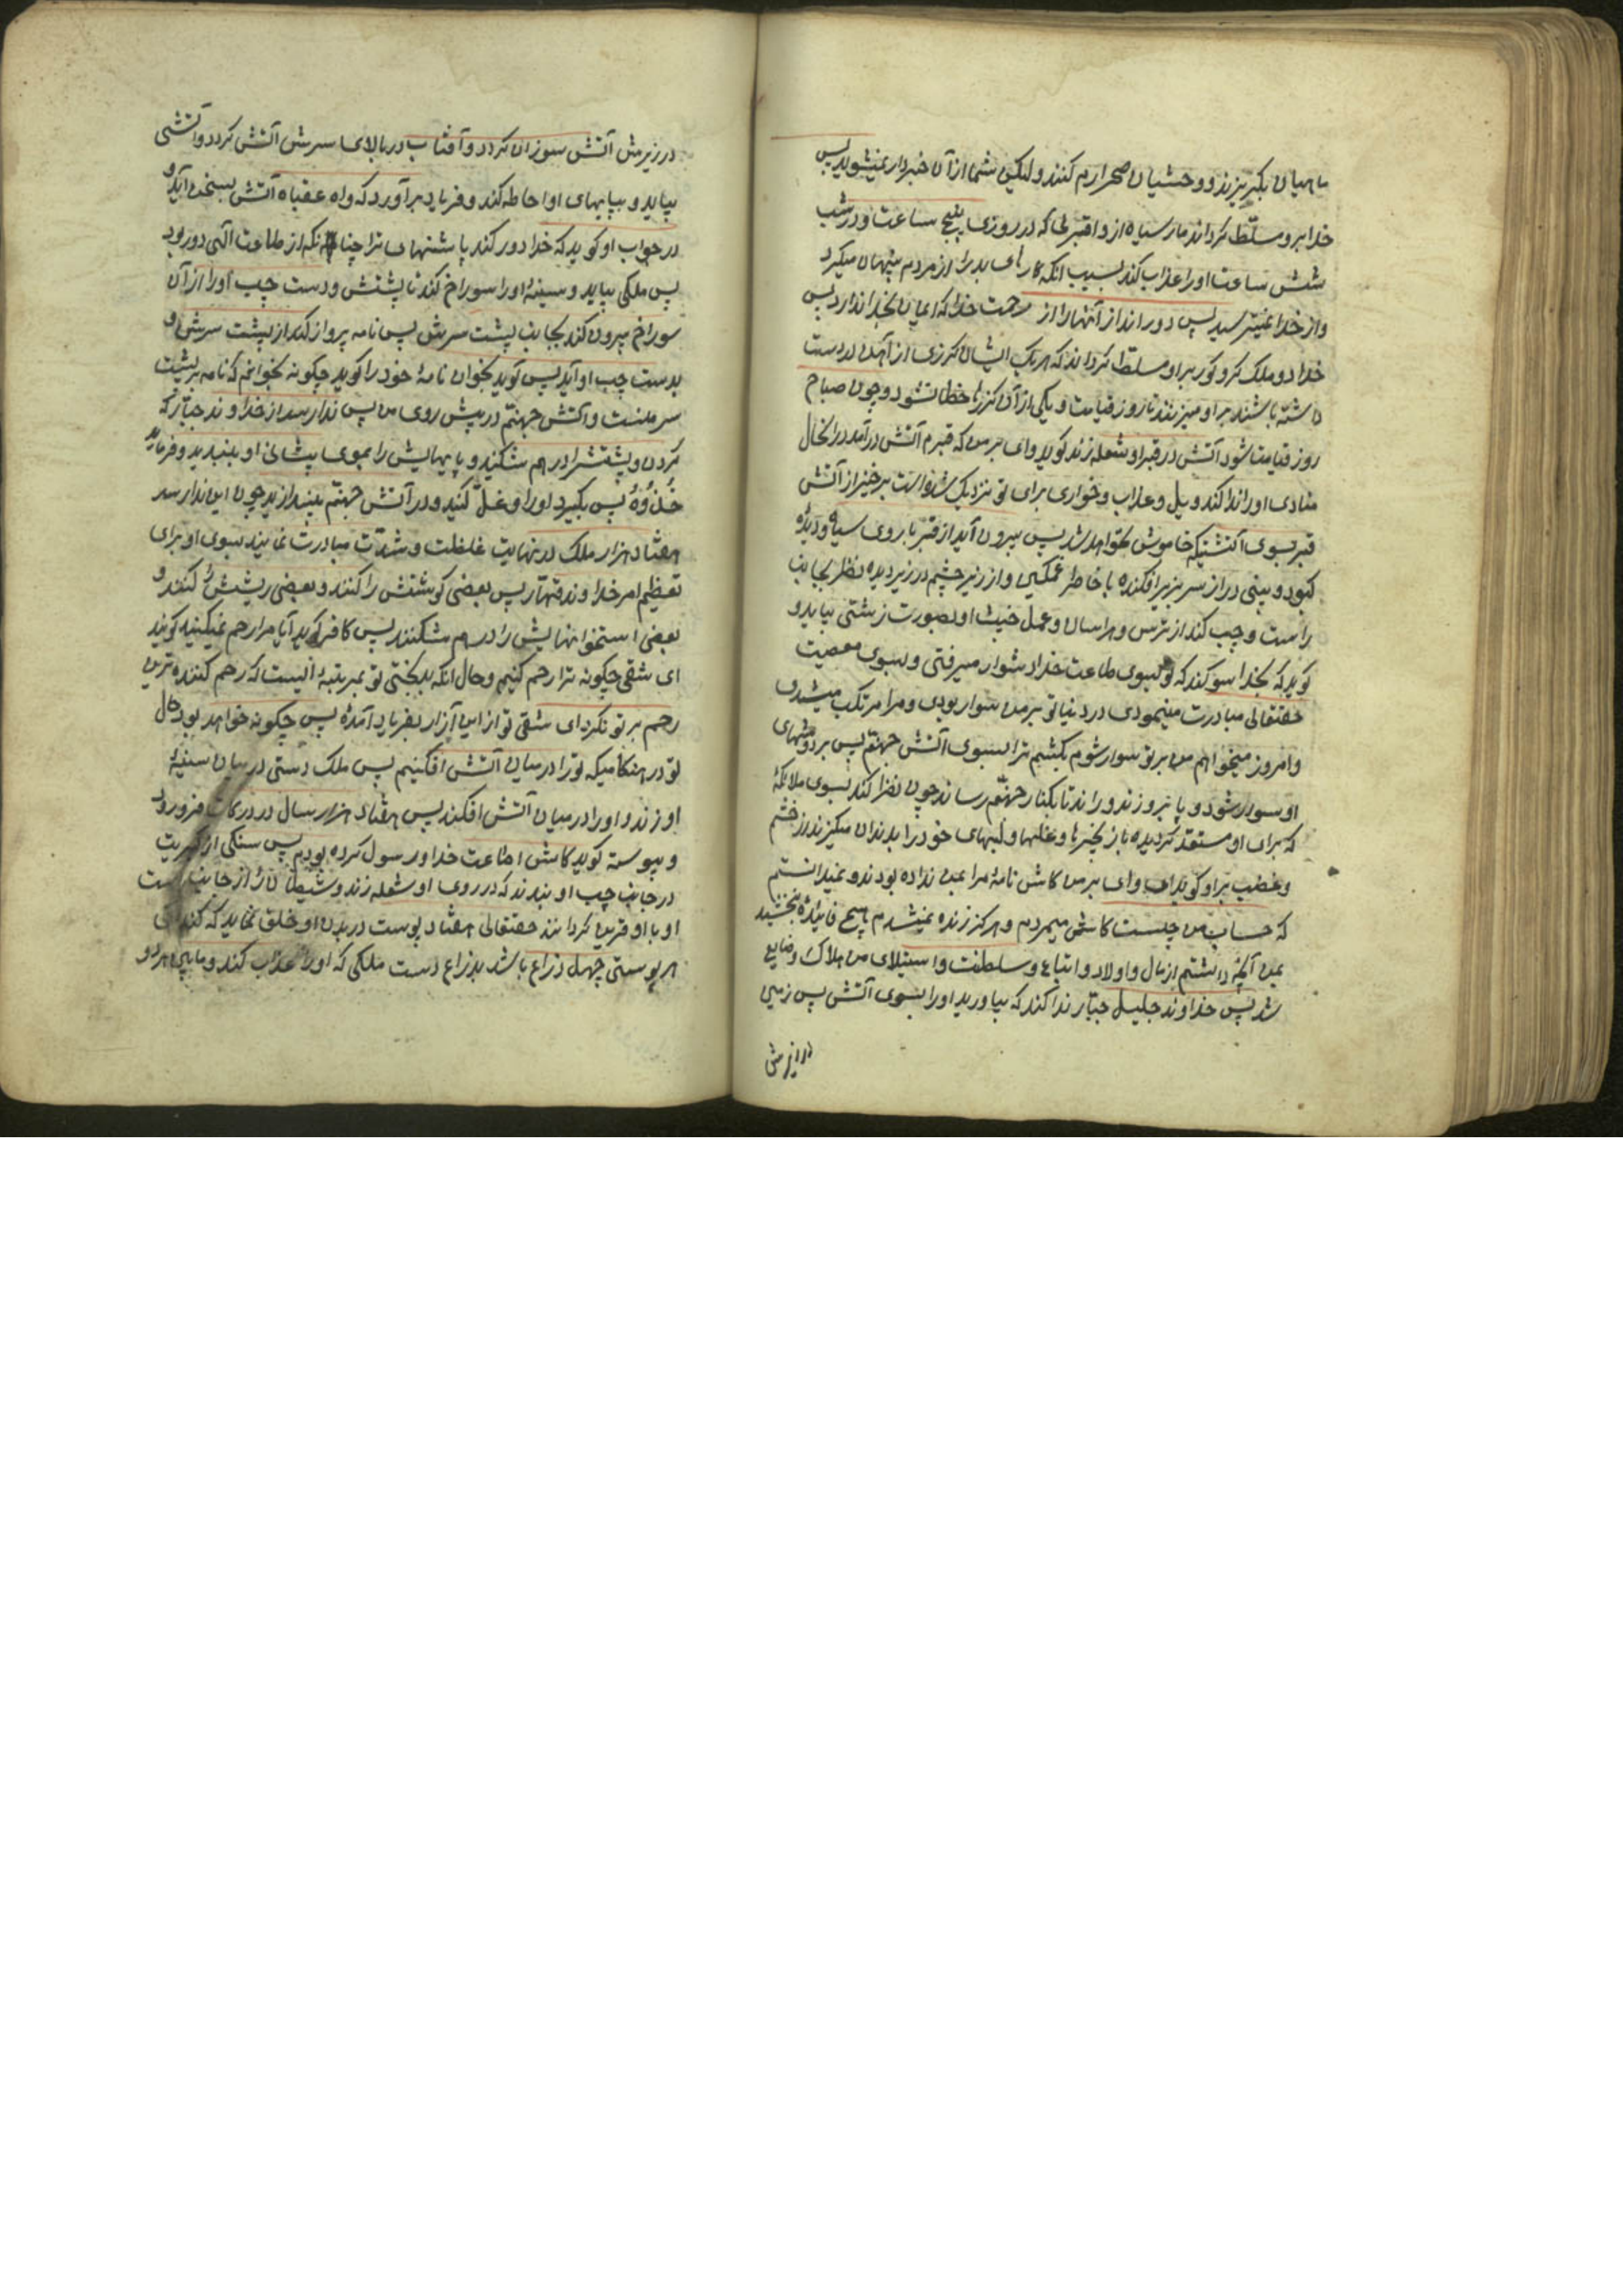 ماهیان بگریزند و وحشیان صحرا رم کنند ولیکن شما از آن خبردار نمیشوید پس
خدا برو مسلّط گرداند مار سیاه در روزی پنج ساعت و در شب
شش ساعت او را عذاب کند بسبب انکه کارهای بد را از مردم پنهان میکرد
و از خدا نمیترسید پس دور انداز آنها را از رحمت خدا که ایمان بخدا ندارد پس
خدا دو ملک کر و کور بر او مسلّط گرداند که هر یک ایشان گرزی از آهن در دست
داشته باشند بر او میزنند تا روز قیامت و یکی از آن گرزها خطا نشود و چون صباح
روز قیامت شود آتش در قبر او شعله زند گوید وای بر من که قبرم آتش در آمد در انحال
منادی او را ندا کند ویل و عذاب و خواری برای تو نزدیک شد برخیز از آتش
قبر بسوی آتشیکه خاموش نخواهد شد پس بیرون آید از قبر با روی سیاه و دیده
کبود و بینی دراز سر بزیر افکنده با خاطر غمگین و از زیر چشم دزدیده نظر بجانب
راست و چپ کند از ترس و هراسان و عمل خبیث او بصورت زشتی بیاید و
گوید که بخدا سوگند که تو بسوی طاعت خدا دشوار میرفتی و بسوی معصیت
حقتعالی مبادرت مینمودی در دنیا تو بر من سوار بودی و مرا مرتکب میشدی
و امروز میخواهم من بر تو سوار شوم بکشم ترا بسوی آتش جهنّم پس بر دوشهای
او سوار شود و پا برو زند و راند تا بکنار جهنّم رساند چون نظر کند بسوی ملائکهٔ
که برای او مستعد گردیده با زنجیرها و غلها و لبهای خود را بدندان میگزند از خشم
و غضب بر او گوید ای وای بر من کاش نامهٔ مرا بمن نداده بودند و نمیدانستم
که حساب من چیست کاش میمردم و هرگز زنده نمیشدم هیچ فائدهٔ نبخشید
بمن آنچه داشتم از مال و اولاد و اتباع و سلطنت و استیلای من هلاک و ضایع
شد پس خداوند جلیل جبّار ندا کند که بیاورید او را بسوی آتش پس زمین
در زیرش
در زیرش آتش سوزان گردد و آفتاب در بالای سرش آتش گردد و آتشی
بیاید و بپایهای او احاطه کند و فریاد برآورد که واه عقباه آتش بسخن آید و
در جواب او گوید که خدا دور کند پاشنهای ترا چنانکه از طاعت الهی دور بود
پس ملکی بیاید و سینهٔ او را سوراخ کند تا پشتش و دست چپ او را از آن
سوراخ بیرون کند بجانب پشت سرش پس نامه پرواز کند از پشت سرش و
بدست چپ او آید پس گوید بخوان نامهٔ خود را گوید چگونه بخوانم که نامه بر پشت
سر منست و آتش جهنّم در پیش روی من پس ندا رسد از خداوند جبّار که
گردن و پشتش را درهم شکنید و پایهایش را بموی پیشانی او ببندید و فرماید
خُذُوُهُ پس بگیرد او را و غلّ کنید و در آتش جهنّم بیندازید چون این ندا رسد
هفتاد هزار ملک در نهایت غلظت و شدّت مبادرت نمایند بسوی او برای
تعظیم امر خداوند قهّار پس بعضی گوشتش را کنند و بعضی ریشش را کنند و
بعضی استخوانهایش را درهم شکنند پس کافر گوید آیا مرا رحم نمیکنید گویند
ای شقی چگونه ترا رحم کنیم و حال انکه بدبختی تو بمرتبهٔ ایست که رحم کننده ترین
رحم بر تو نکرد ای شقی تو از این آزار بفریاد آمدهٔ پس چگونه خواهد بود حال
تو در هنگامیکه تو را در میان آتش افکنیم پس ملک دستی در میان سینهٔ
او زند و او را در میان آتش افکند پس هفتاد هزار سال در درکات فرو رود
و پیوسته گوید کاش اطاعت خدا و رسول کرده بودم پس سنگی از کبریت
در جانب چپ او بندند که در روی او شعله زند و شیطان را از جانب راست
او با او قرین گردانند حقتعالی هفتاد پوست در بدن او خلق نماید که
هر پوستی چهل ذراع باشد بذراع دست ملکی که او را عذاب کند و مابین هر دو